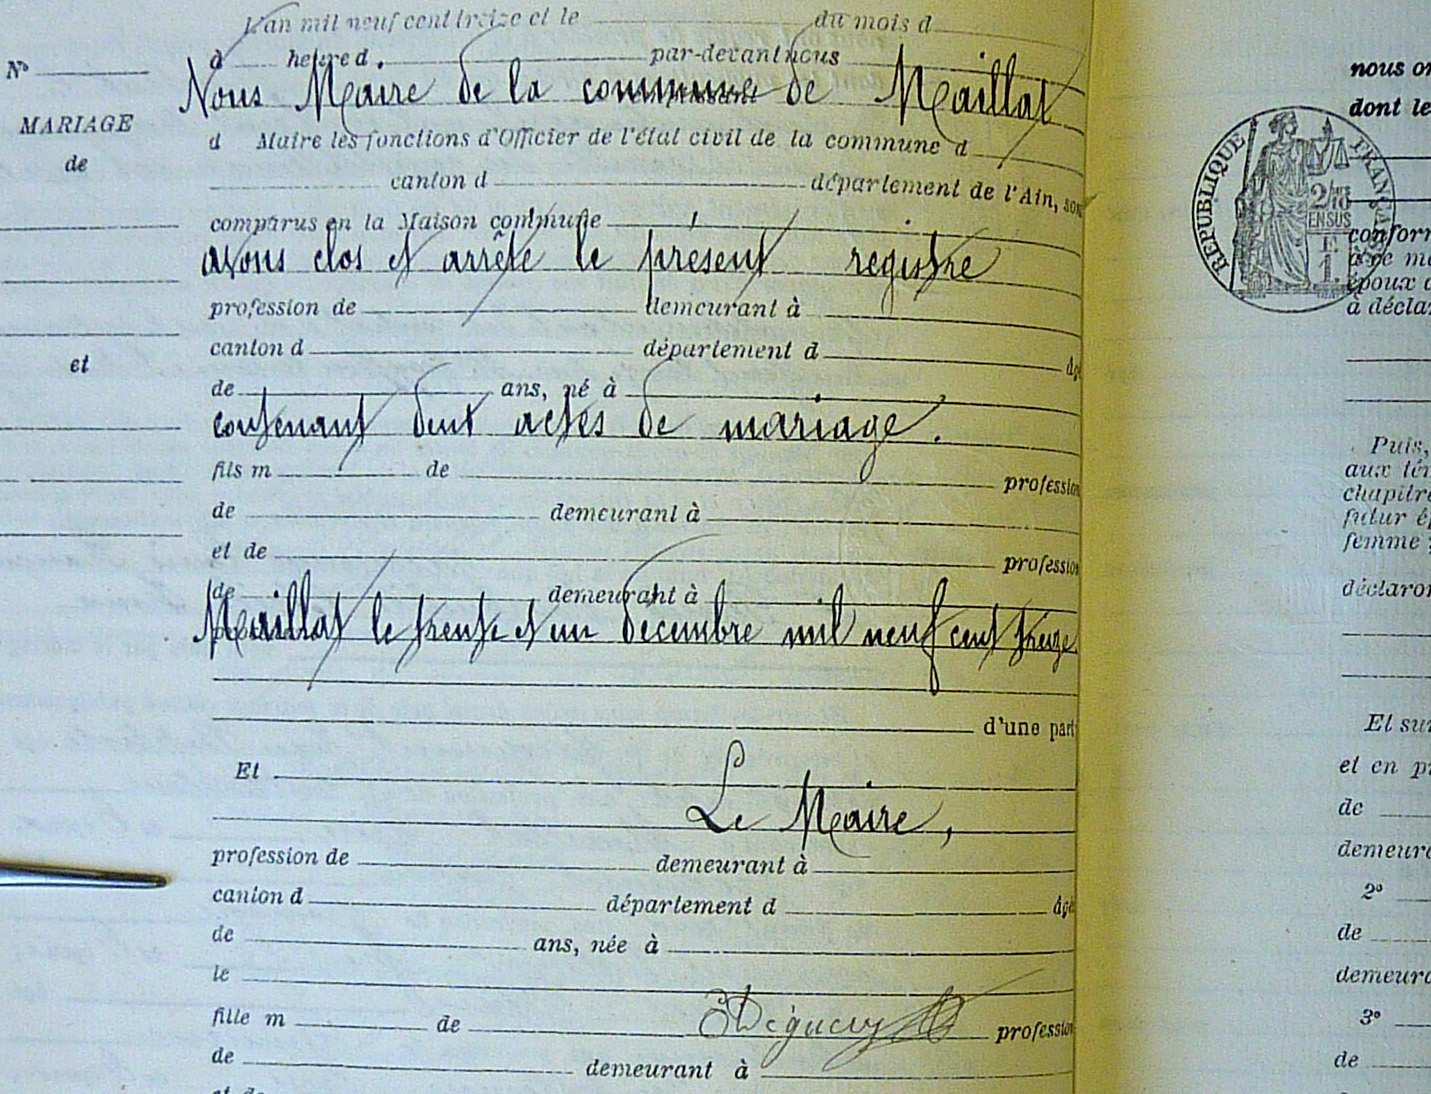 L'an mil neuf cent treize et le du mois d
N° d heure d par-devant nous
Nous Maire de la commune de Maillat
MARIAGE
d Maire les fonctions d'Officier de l'état civil de la commune d
de
canton d département de l'Ain, son
comparus en la Maison commune
avons clos et arrêté le présent registre
profession de demeurant à
canton d département d âgé
et
de ans, né à
contenant deux actes de mariage.
fils m de profession
de demeurant à
et de profession
de demeurant à
Maillat le trente et un décembre mil neuf cent treize
d'une part
Et
Le Maire,
profession de demeurant à
canton d département d âgée
de ans, née à
le
fille m de profession
de demeurant à
et de
nous on
dont le
RÉPUBLIQUE FRANÇ
2/10
EN SUS
1 F
conform
époux d
à déclar
Puis,
aux tém
chapitre
futur ép
femme ;
déclaron
Et sur
et en pr
de
demeura
2°
de
demeura
3°
de